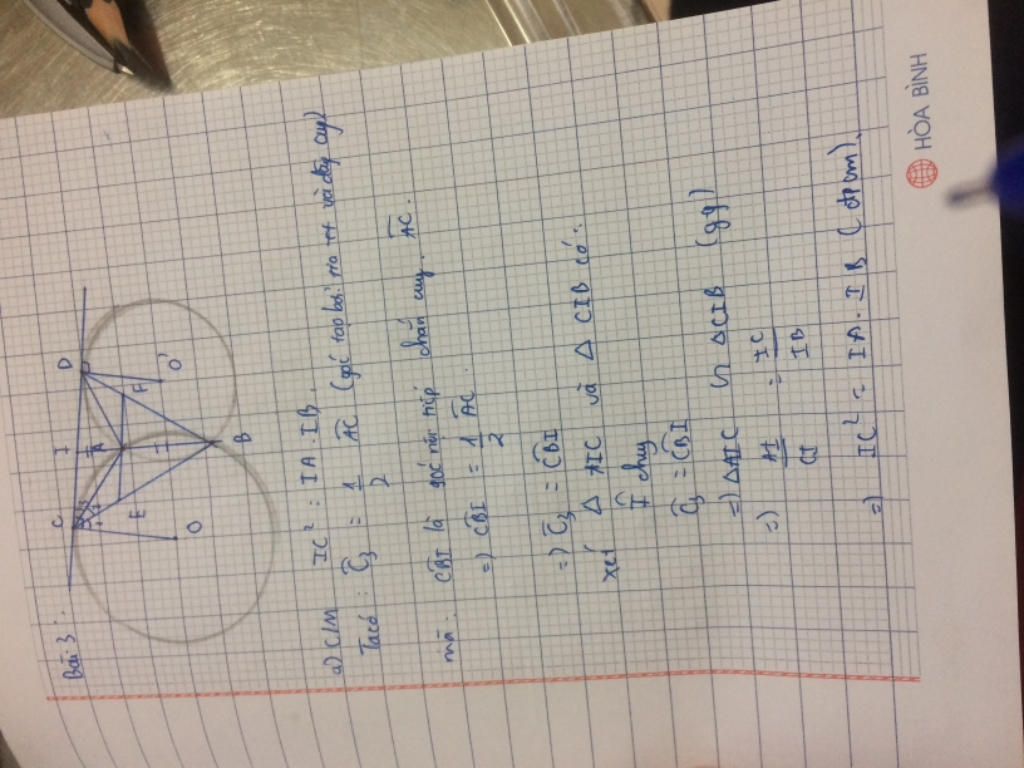 Bài 3:
C I D
A
E F
O O'
B
a) C/M IC² = IA.IB
Ta có: Ĉ₃ = 1/2 AC (góc tạo bởi tia tt và dây cung)
mà: CBI là góc nội tiếp chắn cung AC.
=) CBI = 1/2 AC.
=) Ĉ₃ = CBI
xét Δ AIC và Δ CIB có:
Î chung
Ĉ₃ = CBI
=) ΔAIC ∽ ΔCIB (gg)
=) AI/CI = IC/IB
=) IC² = IA.IB (đpcm).
HÒA BÌNH